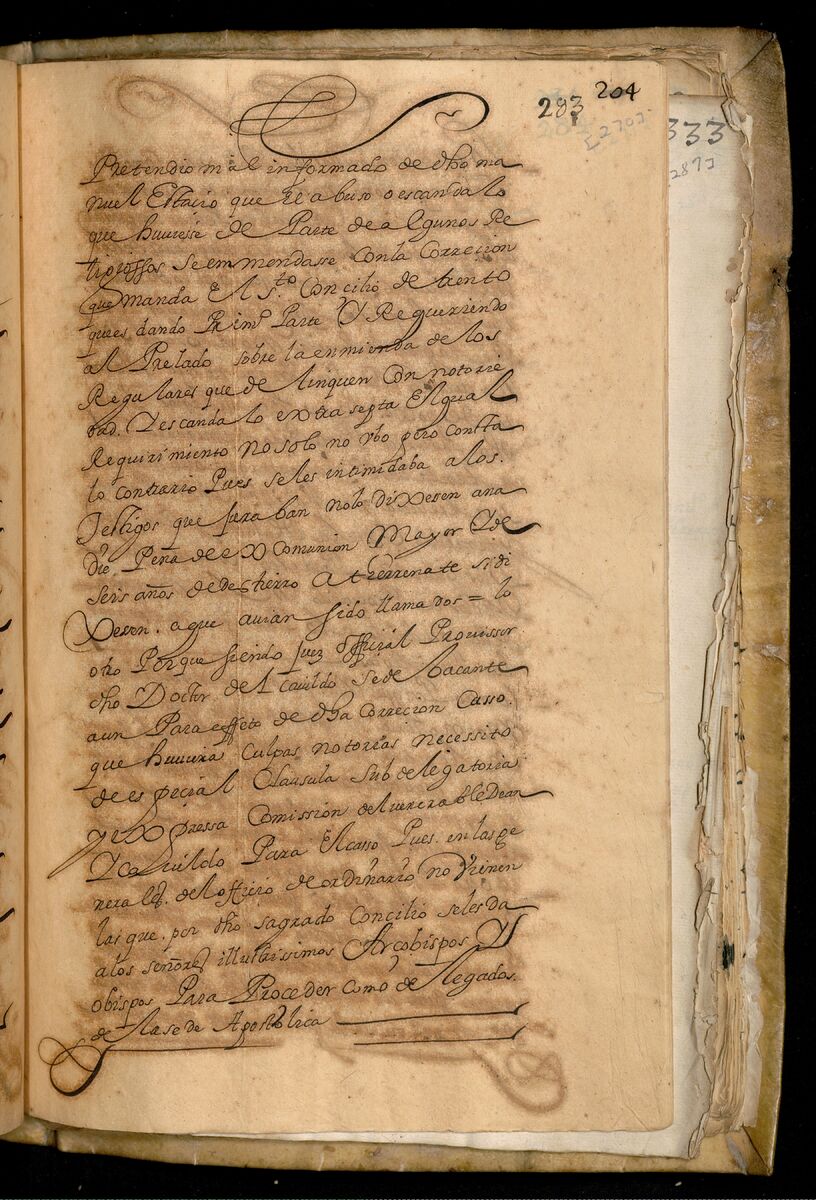 283 204
[270]
333
287]
Pretendio mal informado de dho ma
nuel Estacio que el abuso o escandalo
que huuiesse de Parte de algunos Re
ligiossos se emmendasse con la Correcion
que manda El S.to Concilio de trento
que es dando Prim.o Parte Y Requeriendo
al Prelado sobre la enmienda de los
Regulares que delinquen Con notorie
dad. Y escandalo extra septa El qual
Requirimiento no solo no vbo pero consta
lo contrario Pues se les intimidaba a los.
Testigos que juraban no lo dixesen a na
die Pena de exComunion Mayor Y de
seis años de destierro A therrenate si di
Xesen. a que auian sido llamados = lo
otro Porque siendo juez official Prouissor
dho Doctor del Cauildo Sede bacante
aun Para effeto de dha Correcion Casso.
que huuiera Culpas notorias necessito
de especial Clausula Subdelegatoria
y eXpressa Comission del venerable Dean
Y Cauildo Para El casso Pues. en las ge
nerales. del officio de ordinario no vienen
las que. por dho sagrado Concilio se les da
a los señores illustrissimos Arcobispos Y
obispos Para Proceder como de legados.
de la sede Apostolica